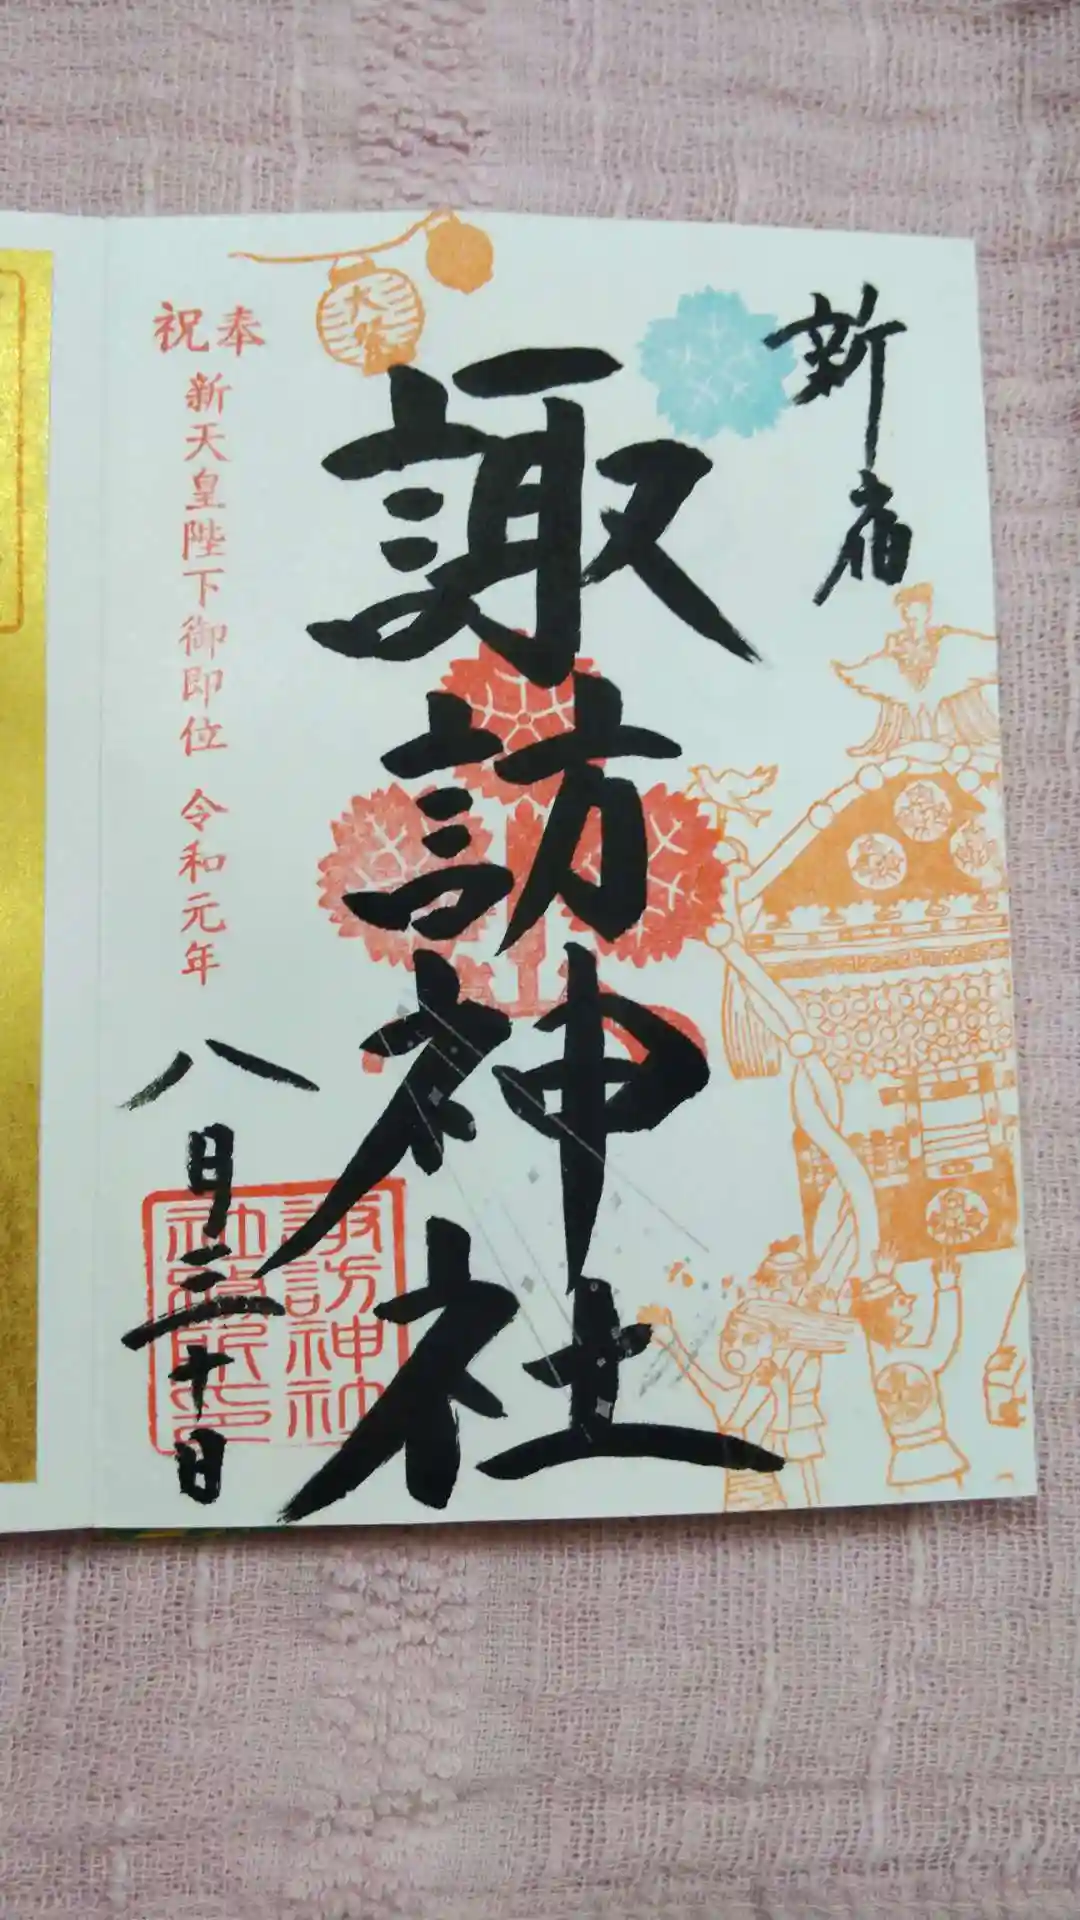 新宿
諏訪神社
大祭
奉祝
新天皇陛下御即位 令和元年
八月三十日
諏訪神社